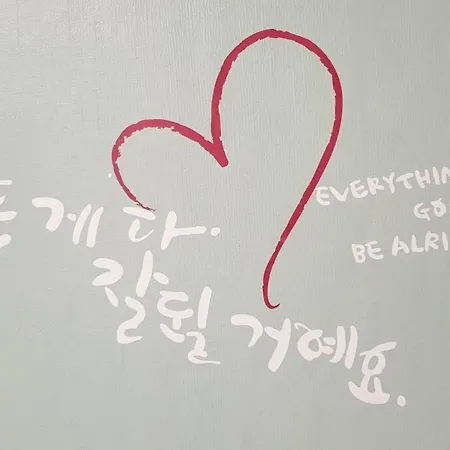 게 다.
잘 될 거예요.
EVERYTHIN
GO
BE ALRI